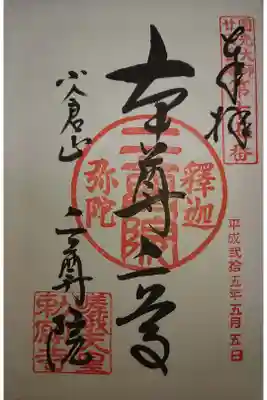 圓光大師
奉拝
平成貳拾五年五月五日
本尊二尊
釋迦
弥陀
二尊院
小倉山
二尊院